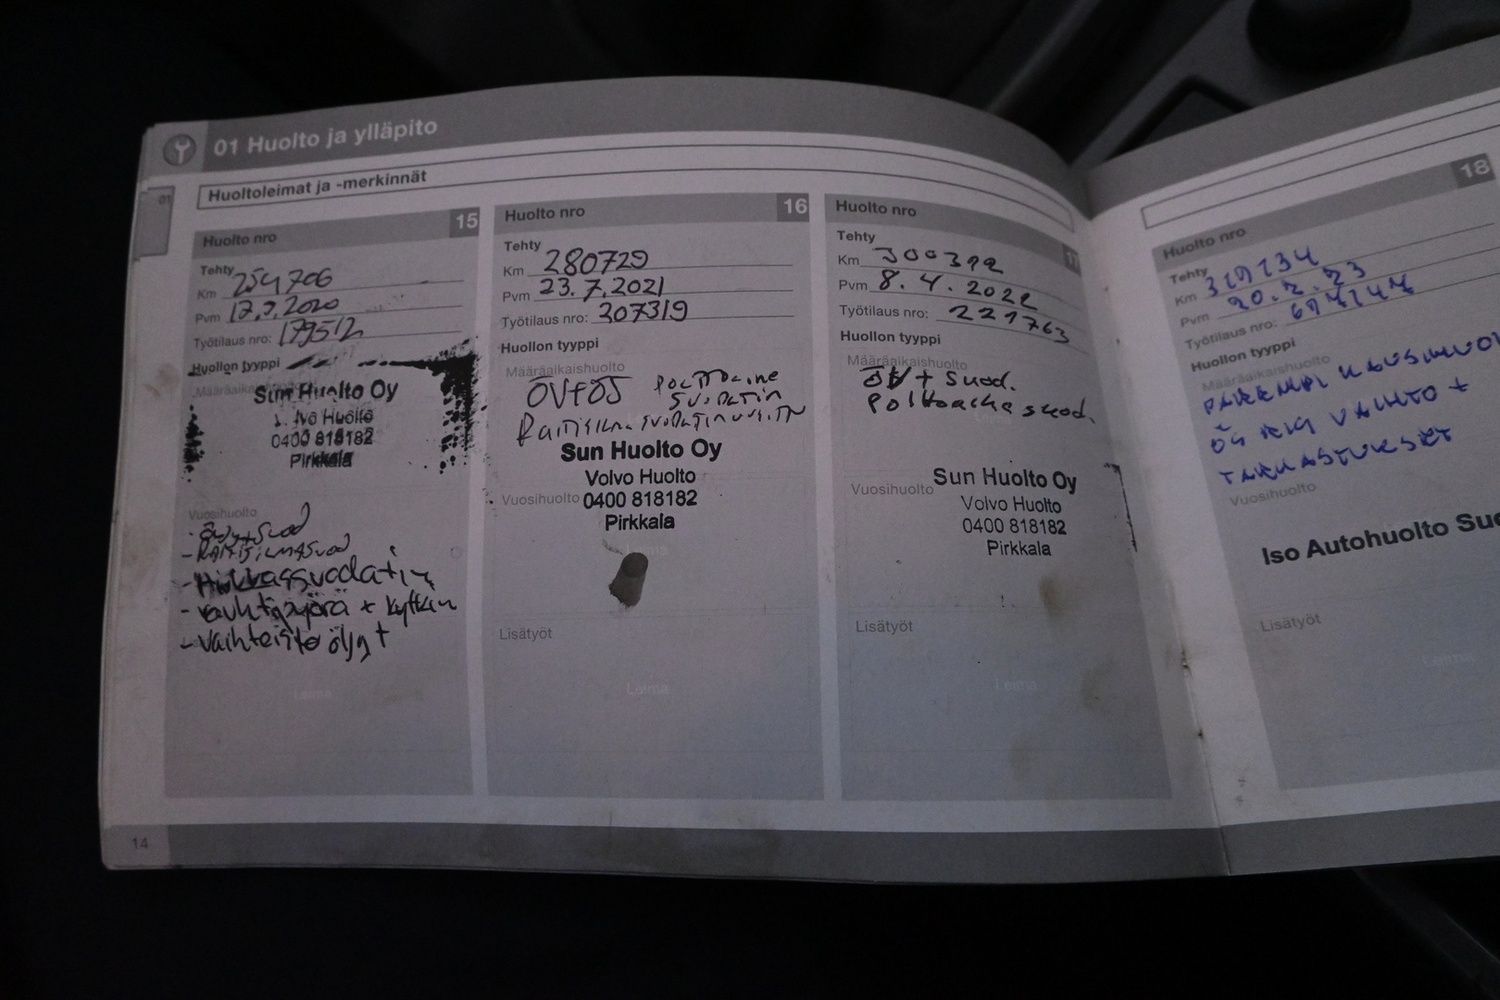 01 Huolto ja ylläpito
01
Huoltoleimat ja -merkinnät
Huolto nro 15
Tehty
Km 254706
Pvm
Työtilaus nro: 179512
Huollon tyyppi
Määräaikaishuolto
Sun Huolto Oy
Huolto
0400 818182
Pirkkala
Vuosihuolto
- Raitisilmasuod
- Hiukkassuodatin
- vauhtipyörä + kytkin
- vaihteisto öljyt
Leima
14
Huolto nro 16
Tehty
Km 280729
Pvm 23.7.2021
Työtilaus nro: 207319
Huollon tyyppi
Määräaikaishuolto
ÖV+ÖS Polttoaine
suodatin
Raitisilmasuodatin
Sun Huolto Oy
Volvo Huolto
Vuosihuolto 0400 818182
Pirkkala
Leima
Lisätyöt
Leima
Huolto nro 17
Tehty
Km 300392
Pvm 8.4.2022
Työtilaus nro: 221763
Huollon tyyppi
Määräaikaishuolto
ÖV + Suod.
Polttoaine suod.
Vuosihuolto Sun Huolto Oy
Volvo Huolto
0400 818182
Pirkkala
Lisätyöt
Leima
Huolto nro 18
Tehty
Km 319134
Pvm 20.2.23
Työtilaus nro:
Huollon tyyppi
Määräaikaishuolto
VAIHTO +
TARKASTUKSET
Vuosihuolto
Iso Autohuolto
Lisätyöt
Leima